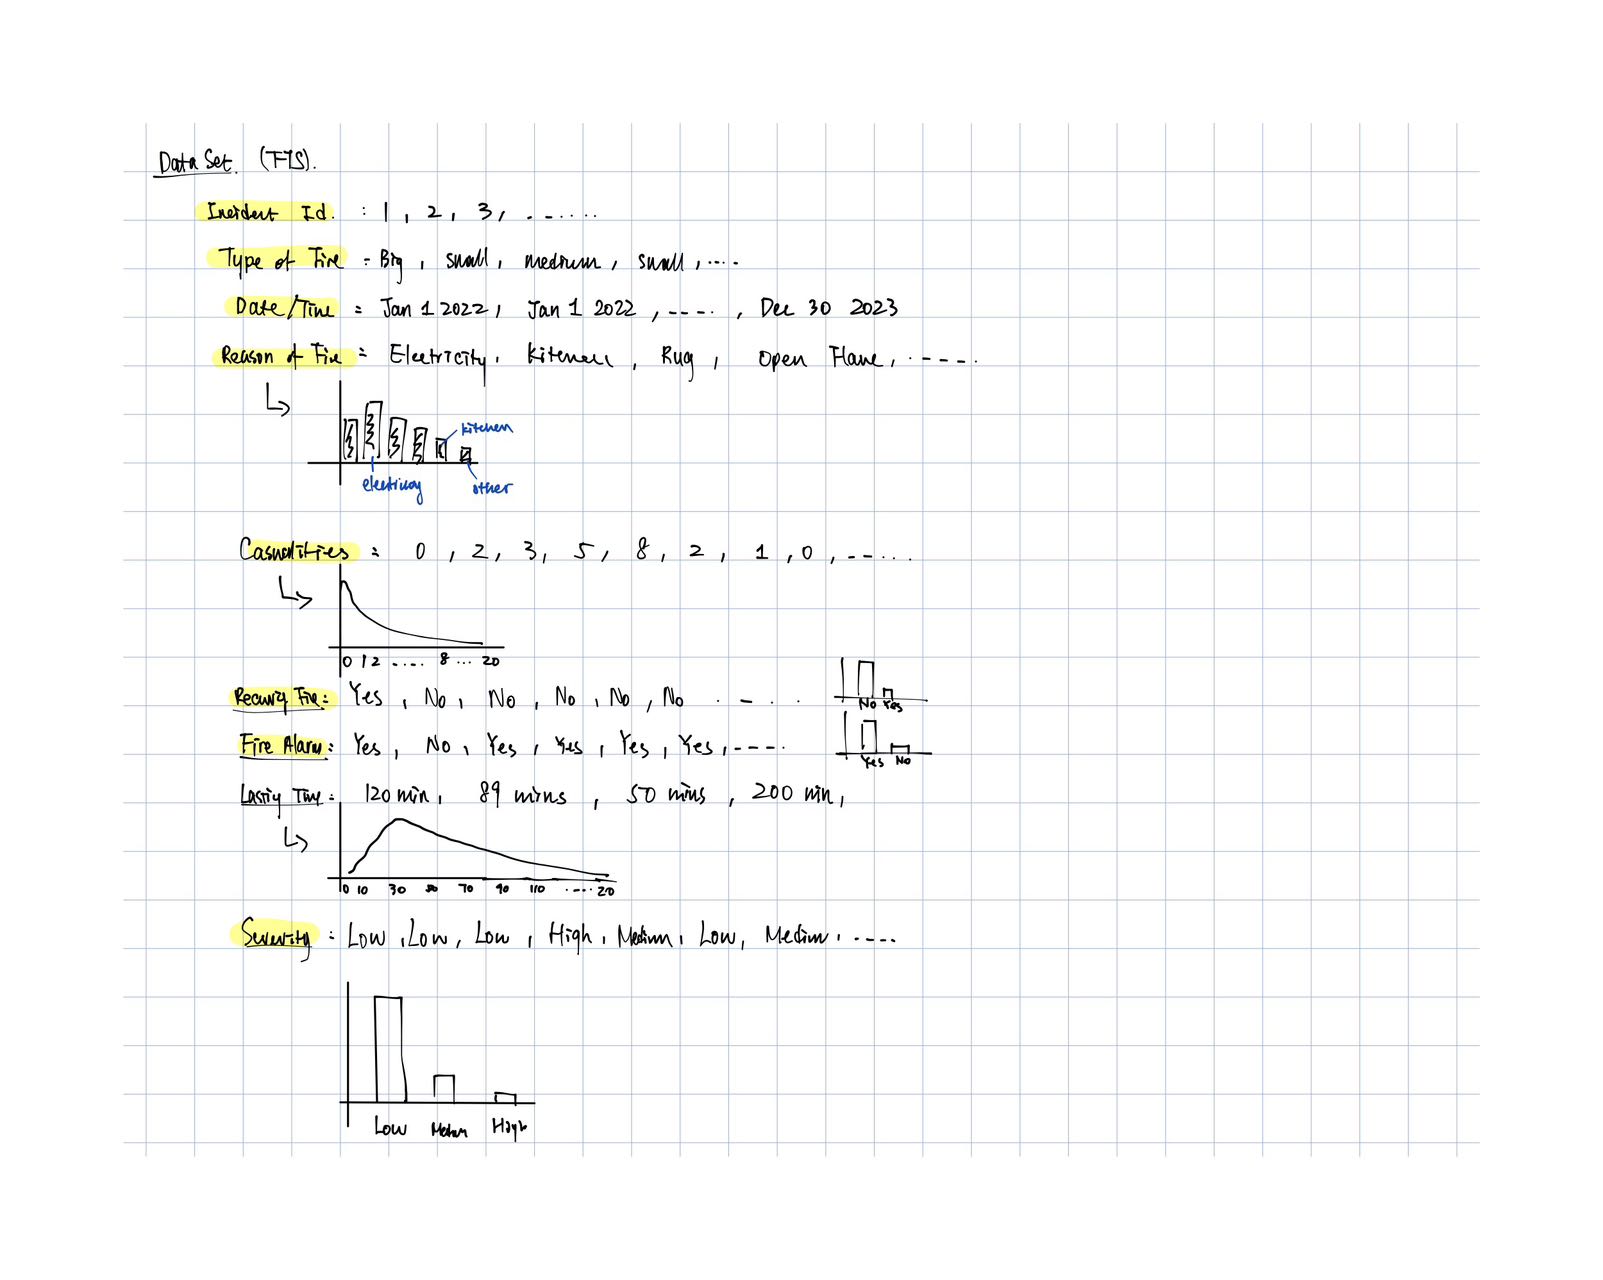 Data Set. (FIS).
Incident Id. : 1, 2, 3, ......
Type of Fire : Big, small, medium, small, ....
Date/Time : Jan 1 2022, Jan 1 2022, ----. , Dec 30 2023
Reason of Fire : Electricity, Kitchen, Rug, Open Flame, .-----.
kitchen
electricity
other
Casualities : 0, 2, 3, 5, 8, 2, 1, 0, --...
0 1 2 ..... 8 ... 20
Recurig Fire : Yes, No, No, No, No, No . - . .
No Yes
Fire Alarm : Yes, No, Yes, Yes, Yes, Yes, ----.
Yes No
Lastig Time : 120 min, 89 mins, 50 mins, 200 min,
0 10 30 50 70 90 110 .---. 20
Severity : Low, Low, Low, High, Medium, Low, Medium, ----
Low Medium High